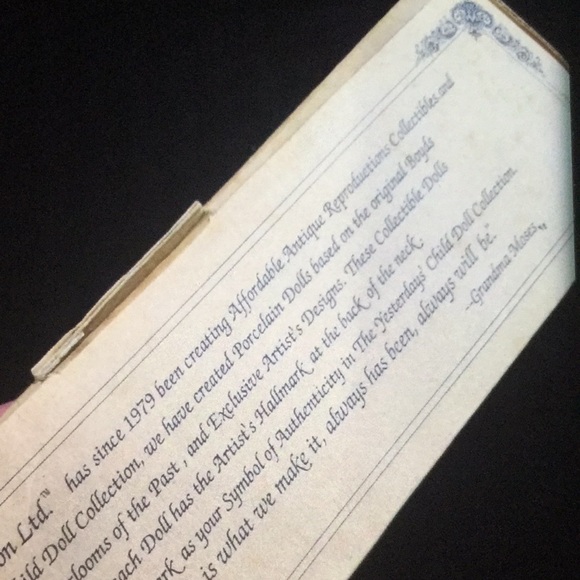 on Ltd.™ has since 1979 been creating Affordable Antique Reproductions Collectibles and
ild Doll Collection, we have created Porcelain Dolls based on the original Boyds
rlooms of the Past, and Exclusive Artist's Designs. These Collectible Dolls
ach Doll has the Artist's Hallmark at the back of the neck.
rk as your Symbol of Authenticity in The Yesterdays' Child Doll Collection.
is what we make it, always has been, always will be".
~Grandma Moses~